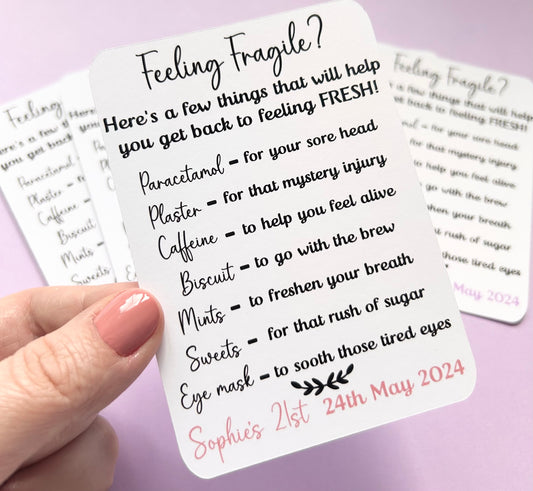 Feeling Fragile?
Here's a few things that will help
you get back to feeling FRESH!
Paracetamol - for your sore head
Plaster - for that mystery injury
Caffeine - to help you feel alive
Biscuit - to go with the brew
Mints - to freshen your breath
Sweets - for that rush of sugar
Eye mask - to sooth those tired eyes
Sophie's 21st 24th May 2024
Feeling
Here's a few
you get b
Paracetamol
Plaster -
Caffeine -
Biscuit
Mints -
Sweets
Feeling Fragile?
few things that will help
back to feeling FRESH!
- for your sore head
for that mystery injury
to help you feel alive
to go with the brew
freshen your breath
that rush of sugar
those tired eyes
May 2024